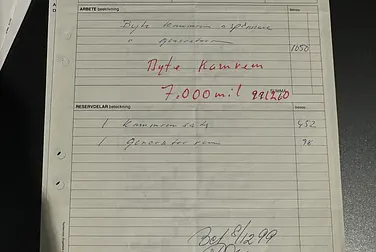 ARBETE beskrivning
Byte kamrem o spännare
o generatorrem
1050
Byte Kamrem
7.000 mil 991210
RESERVDELAR beteckning
1 Kamrem sats 452
1 generator rem 96
Bet 8/12 99